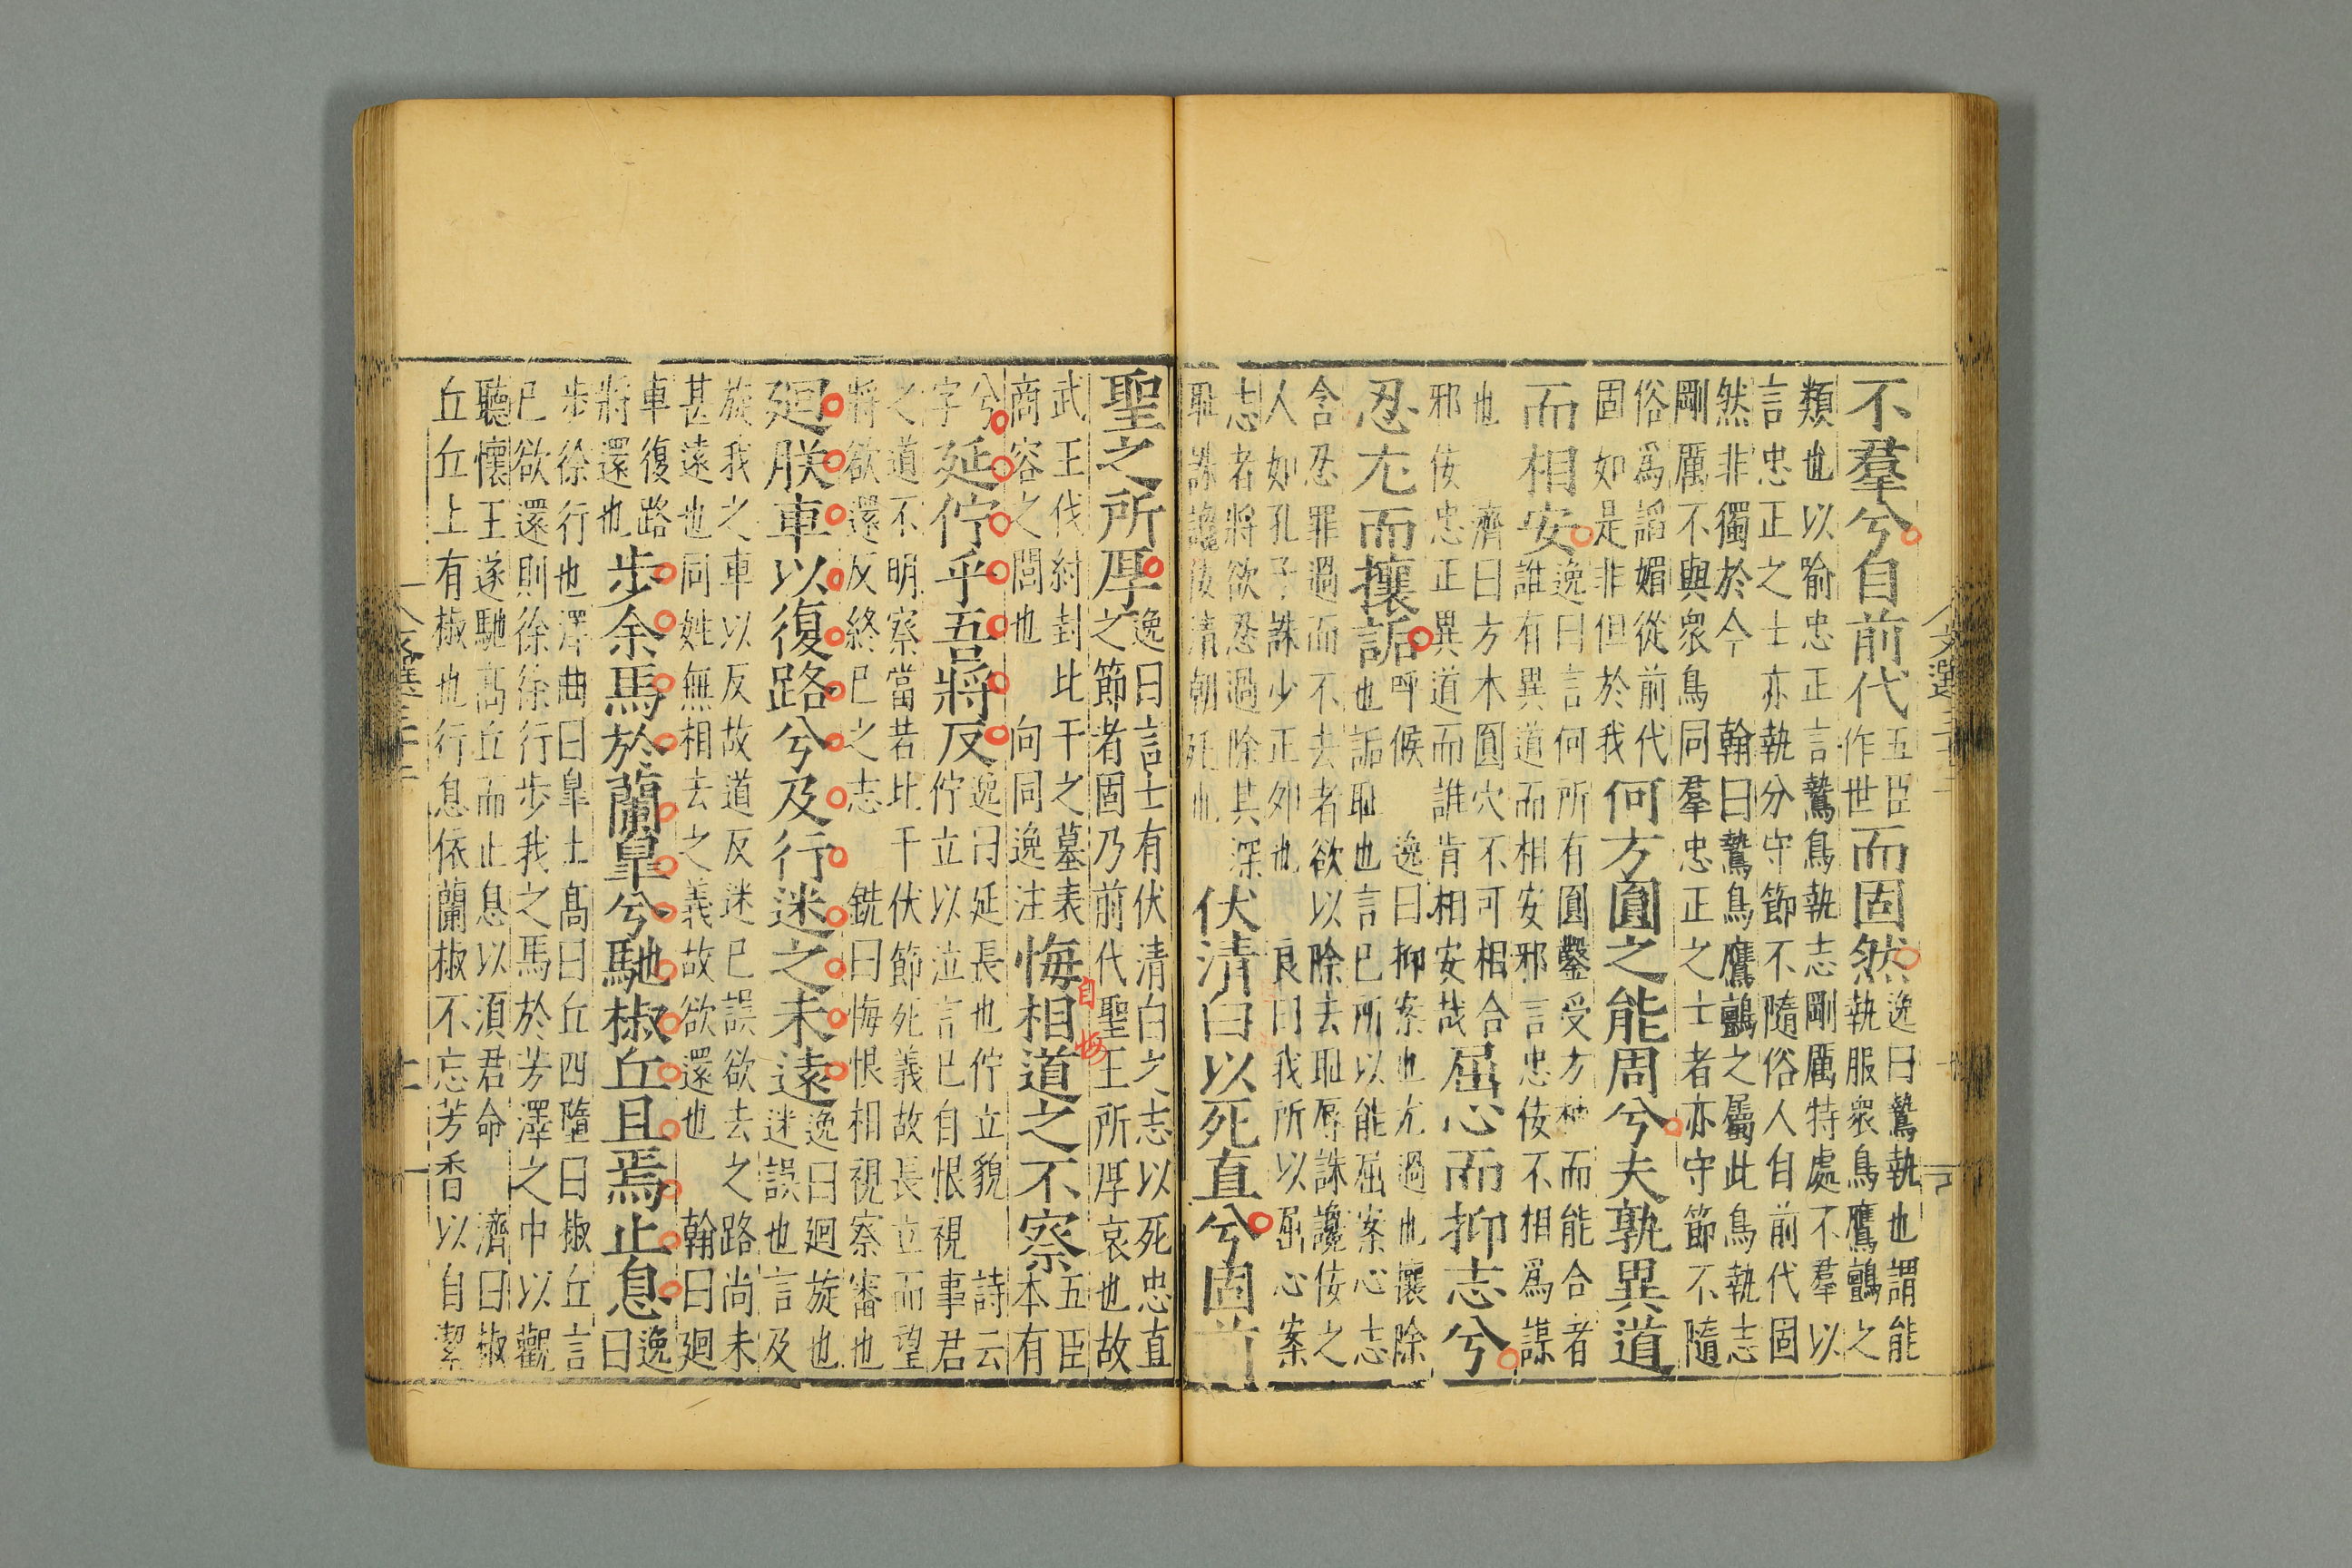 不羣兮自前代五臣作世而固然逸曰鷙執也謂能執服衆鳥鷹鸇之
類也以喻忠正言鷙鳥執志剛厲特處不羣以
言忠正之士亦執分守節不隨俗人自前代固
然非獨於今 翰曰鷙鳥鷹鸇之屬此鳥執志
剛厲不與衆鳥同羣忠正之士者亦守節不隨
俗爲謟媚從前代固如是非但於我何方圓之能周兮夫孰異道
而相安逸曰言何所有圓鑿受方枘而能合者誰有異道而相安邪言忠佞不相爲謀
也 濟曰方木圓穴不可相合
邪佞忠正異道而誰肯相安哉屈心而抑志兮
忍尤而攘詬呼候 逸曰抑案也尤過也攘除也詬耻也言已所以能屈案心志
含忍罪過而不去者欲以除去耻辱誅讒佞之
人如孔子誅少正卯也 良曰我所以屈心案
志者將欲忍過除其深耻誅讒佞清朝死也伏清白以死直兮固前
聖之所厚逸曰言士有伏清白之志以死忠直之節者固乃前代聖王所厚哀也故
武王伐紂封比干之墓表商容之閭也 向同逸注悔相道之不察五臣本有
兮字延佇乎吾將反逸曰延長也佇立貌 詩云佇立以泣言已自恨視事君
之道不明察當若比干伏節死義故長立而望
將欲還反終已之志 銑曰悔恨相視察審也
廻朕車以復路兮及行迷之未遠逸曰廻旋也迷誤也言及
旋我之車以反故道反迷已誤欲去之路尚未
甚遠也同姓無相去之義故欲還也 翰曰廻
車復路將還也步余馬於蘭皐兮馳椒丘且焉止息逸曰
步徐行也澤曲曰皐土髙曰丘四墮曰椒丘言
已欲還則徐徐行步我之馬於芳澤之中以觀
聽懷王遂馳髙丘而止息以須君命 濟曰椒
丘丘上有椒也行息依蘭椒不忘芳香以自潔
自悔